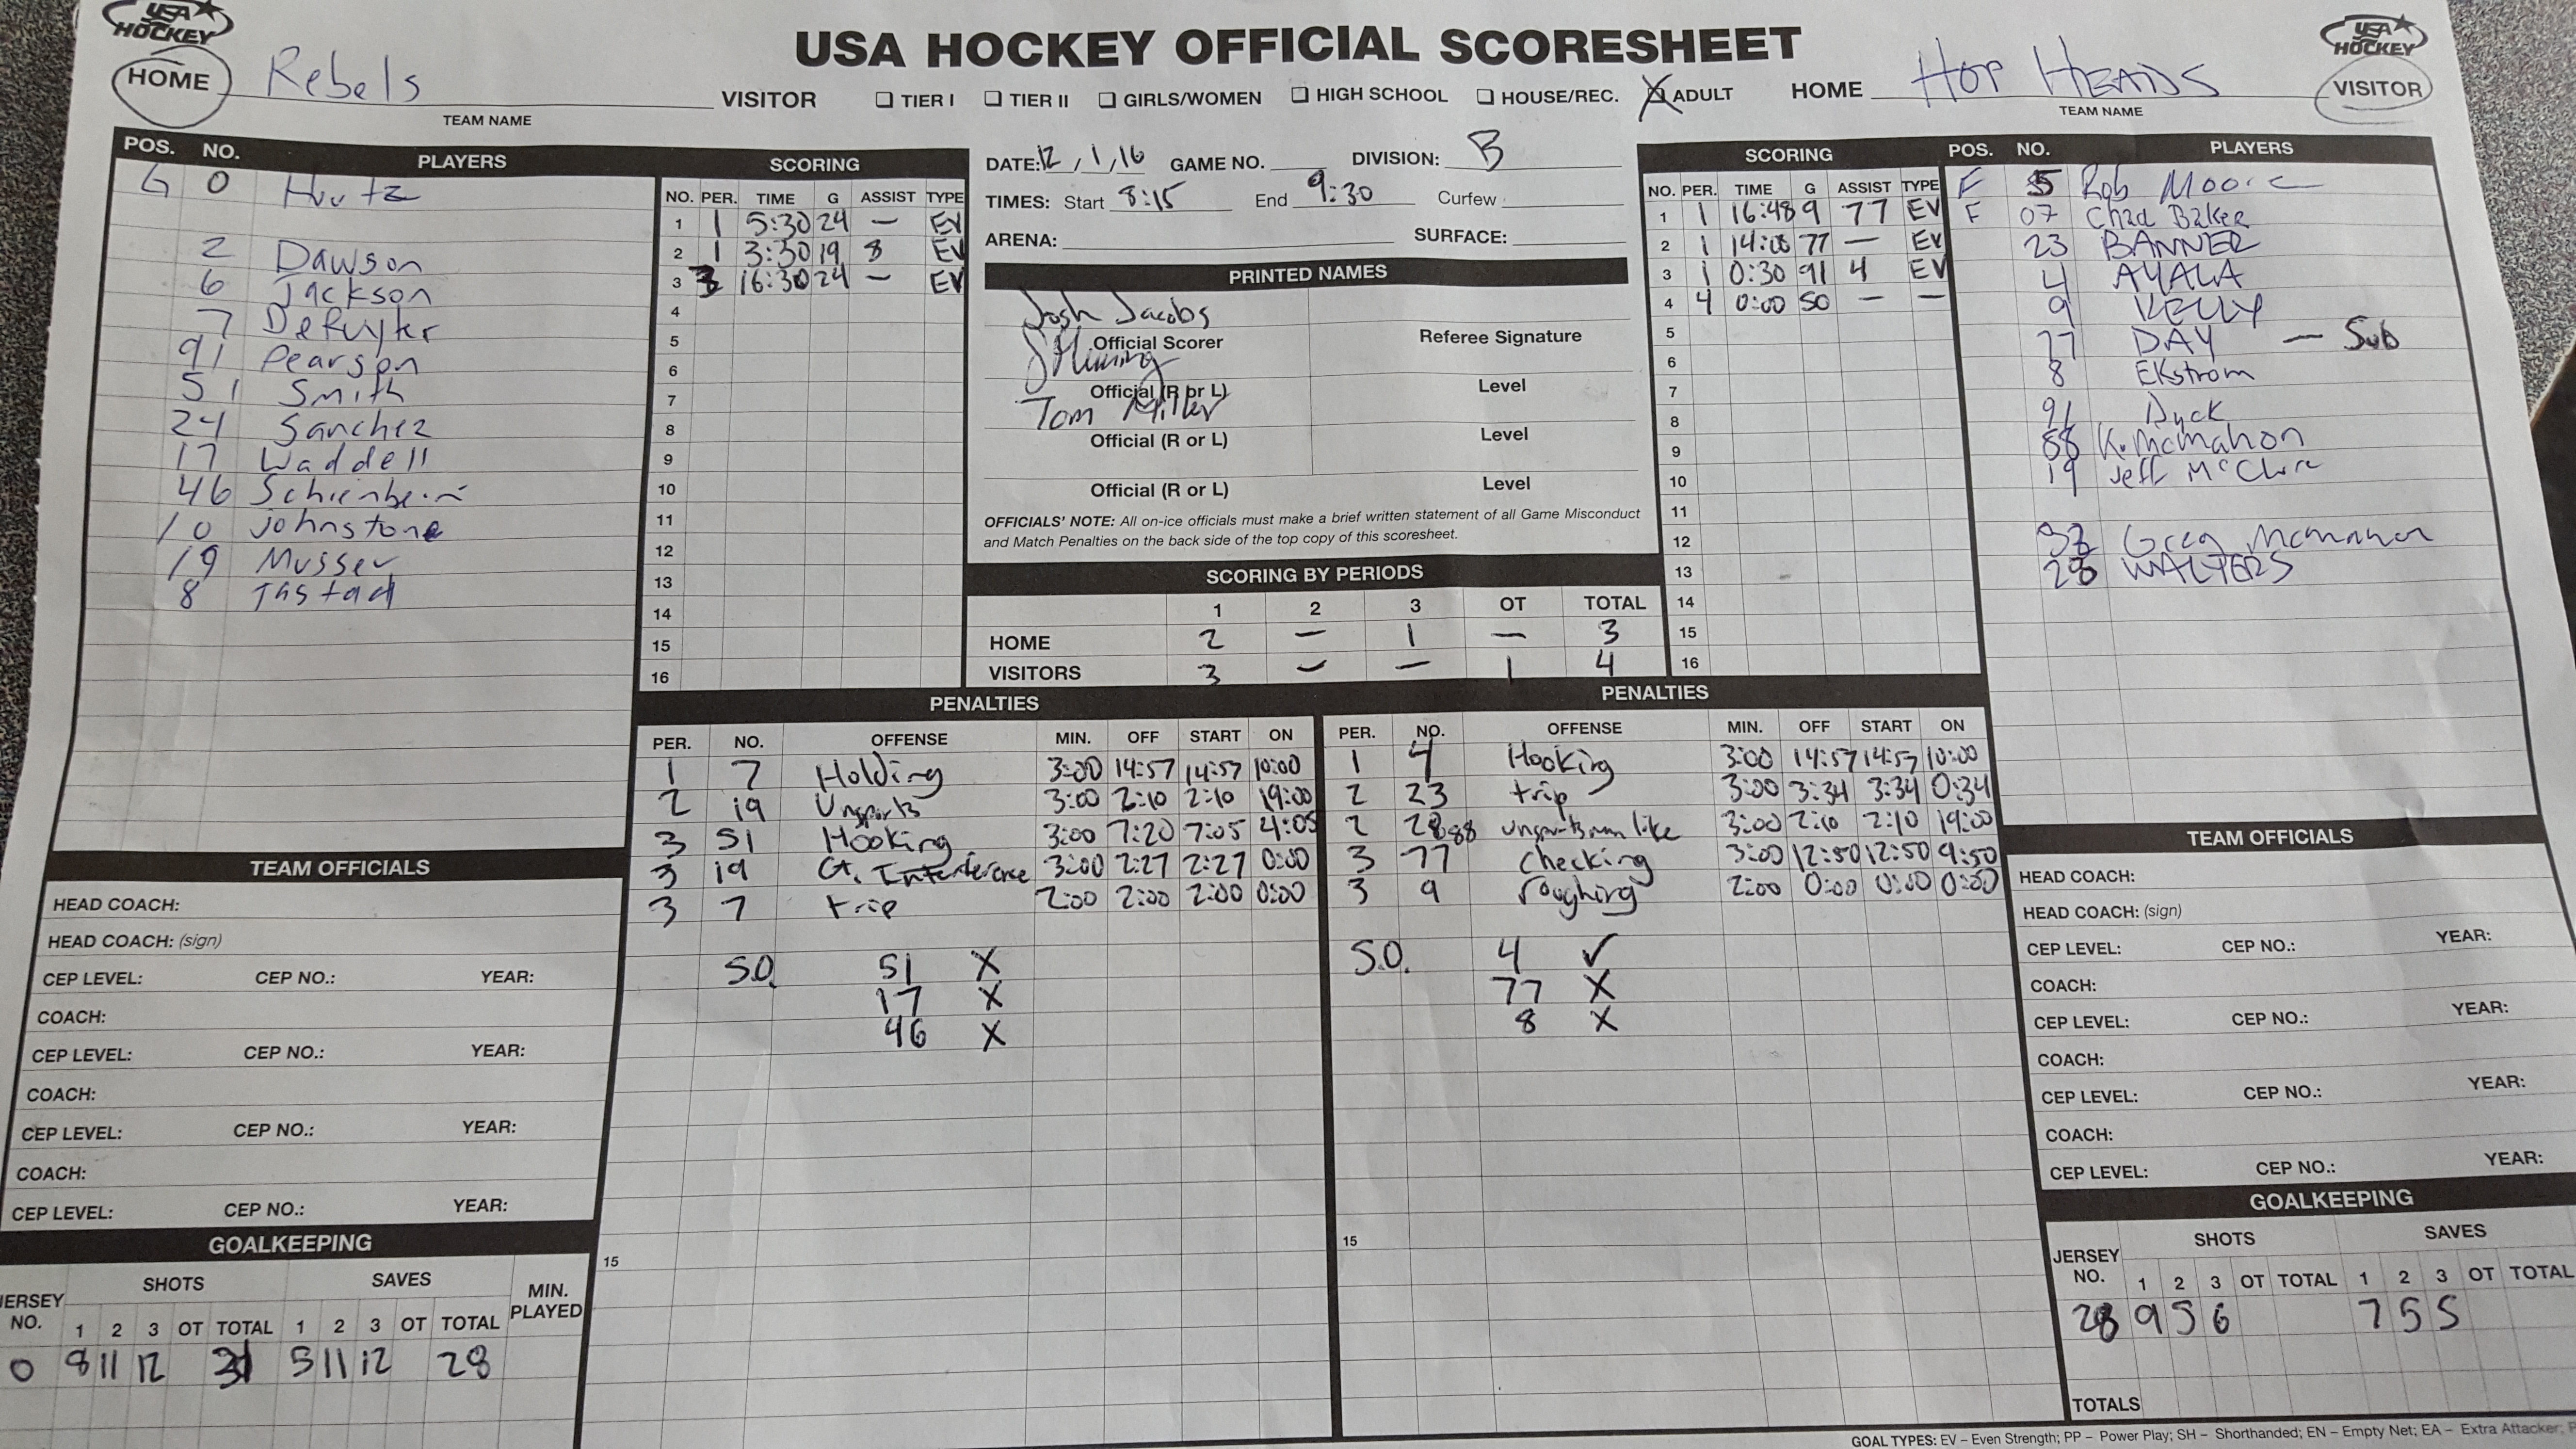 USA HOCKEY
USA HOCKEY OFFICIAL SCORESHEET
USA HOCKEY
HOME Rebels VISITOR
TEAM NAME
TIER I TIER II GIRLS/WOMEN HIGH SCHOOL HOUSE/REC. X ADULT
HOME HOP HEADS VISITOR
TEAM NAME
POS. NO. PLAYERS
G 0
2 Dawson
6 Jackson
7 DeRuyter
91 Pearson
51 Smith
24 Sanchez
17 Waddell
46
10 Johnstone
19 Musser
8 Tastad
SCORING
NO. PER. TIME G ASSIST TYPE
1 1 5:30 24 — EV
2 1 3:30 19 8 EV
3 3 16:30 24 — EV
4
5
6
7
8
9
10
11
12
13
14
15
16
DATE: 12, 1, 16 GAME NO. DIVISION: B
TIMES: Start 8:15 End 9:30 Curfew
ARENA: SURFACE:
PRINTED NAMES
Josh Jacobs
Official Scorer Referee Signature
Official (R or L) Level
Tom Miller
Official (R or L) Level
Official (R or L) Level
OFFICIALS' NOTE: All on-ice officials must make a brief written statement of all Game Misconduct
and Match Penalties on the back side of the top copy of this scoresheet.
SCORING BY PERIODS
1 2 3 OT TOTAL
HOME 2 — 1 — 3
VISITORS 3 — — 1 4
SCORING
NO. PER. TIME G ASSIST TYPE
1 1 16:48 9 77 EV
2 1 14:08 77 — EV
3 1 0:30 91 4 EV
4 4 0:00 50 — —
5
6
7
8
9
10
11
12
13
14
15
16
POS. NO. PLAYERS
F 5 Rob Moore
F 07 Chad Baker
23 BANNER
4 AYALA
9 KELLY
77 DAY — Sub
8 Ekstrom
91 Dyck
88 K. McMahon
19 Jeff McClure
Greg McMahon
28 WALTERS
PENALTIES
PER. NO. OFFENSE MIN. OFF START ON
1 7 Holding 3:00 14:57 14:57 10:00
2 19 Unsports 3:00 2:10 2:10 19:00
3 51 Hooking 3:00 7:20 7:05 4:05
3 19 Gt. Interference 3:00 2:27 2:27 0:00
3 7 trip 2:00 2:00 2:00 0:00
S.O. 51 X
17 X
46 X
15
PENALTIES
PER. NO. OFFENSE MIN. OFF START ON
1 4 Hooking 3:00 14:57 14:57 10:00
2 23 trip 3:00 3:34 3:34 0:34
2 88 unsportsmanlike 3:00 2:10 2:10 19:00
3 77 checking 3:00 12:50 12:50 9:50
3 9 roughing 2:00 0:00 0:00 0:00
S.O. 4 ✓
77 X
8 X
15
TEAM OFFICIALS
HEAD COACH:
HEAD COACH: (sign)
CEP LEVEL: CEP NO.: YEAR:
COACH:
CEP LEVEL: CEP NO.: YEAR:
COACH:
CEP LEVEL: CEP NO.: YEAR:
COACH:
CEP LEVEL: CEP NO.: YEAR:
GOALKEEPING
JERSEY NO. SHOTS SAVES MIN. PLAYED
1 2 3 OT TOTAL 1 2 3 OT TOTAL
0 8 11 12 31 5 11 12 28
TEAM OFFICIALS
HEAD COACH:
HEAD COACH: (sign)
CEP LEVEL: CEP NO.: YEAR:
COACH:
CEP LEVEL: CEP NO.: YEAR:
COACH:
CEP LEVEL: CEP NO.: YEAR:
COACH:
CEP LEVEL: CEP NO.: YEAR:
GOALKEEPING
JERSEY NO. SHOTS SAVES
1 2 3 OT TOTAL 1 2 3 OT TOTAL
28 9 5 6 7 5 5
TOTALS
GOAL TYPES: EV – Even Strength; PP – Power Play; SH – Shorthanded; EN – Empty Net; EA – Extra Attacker;